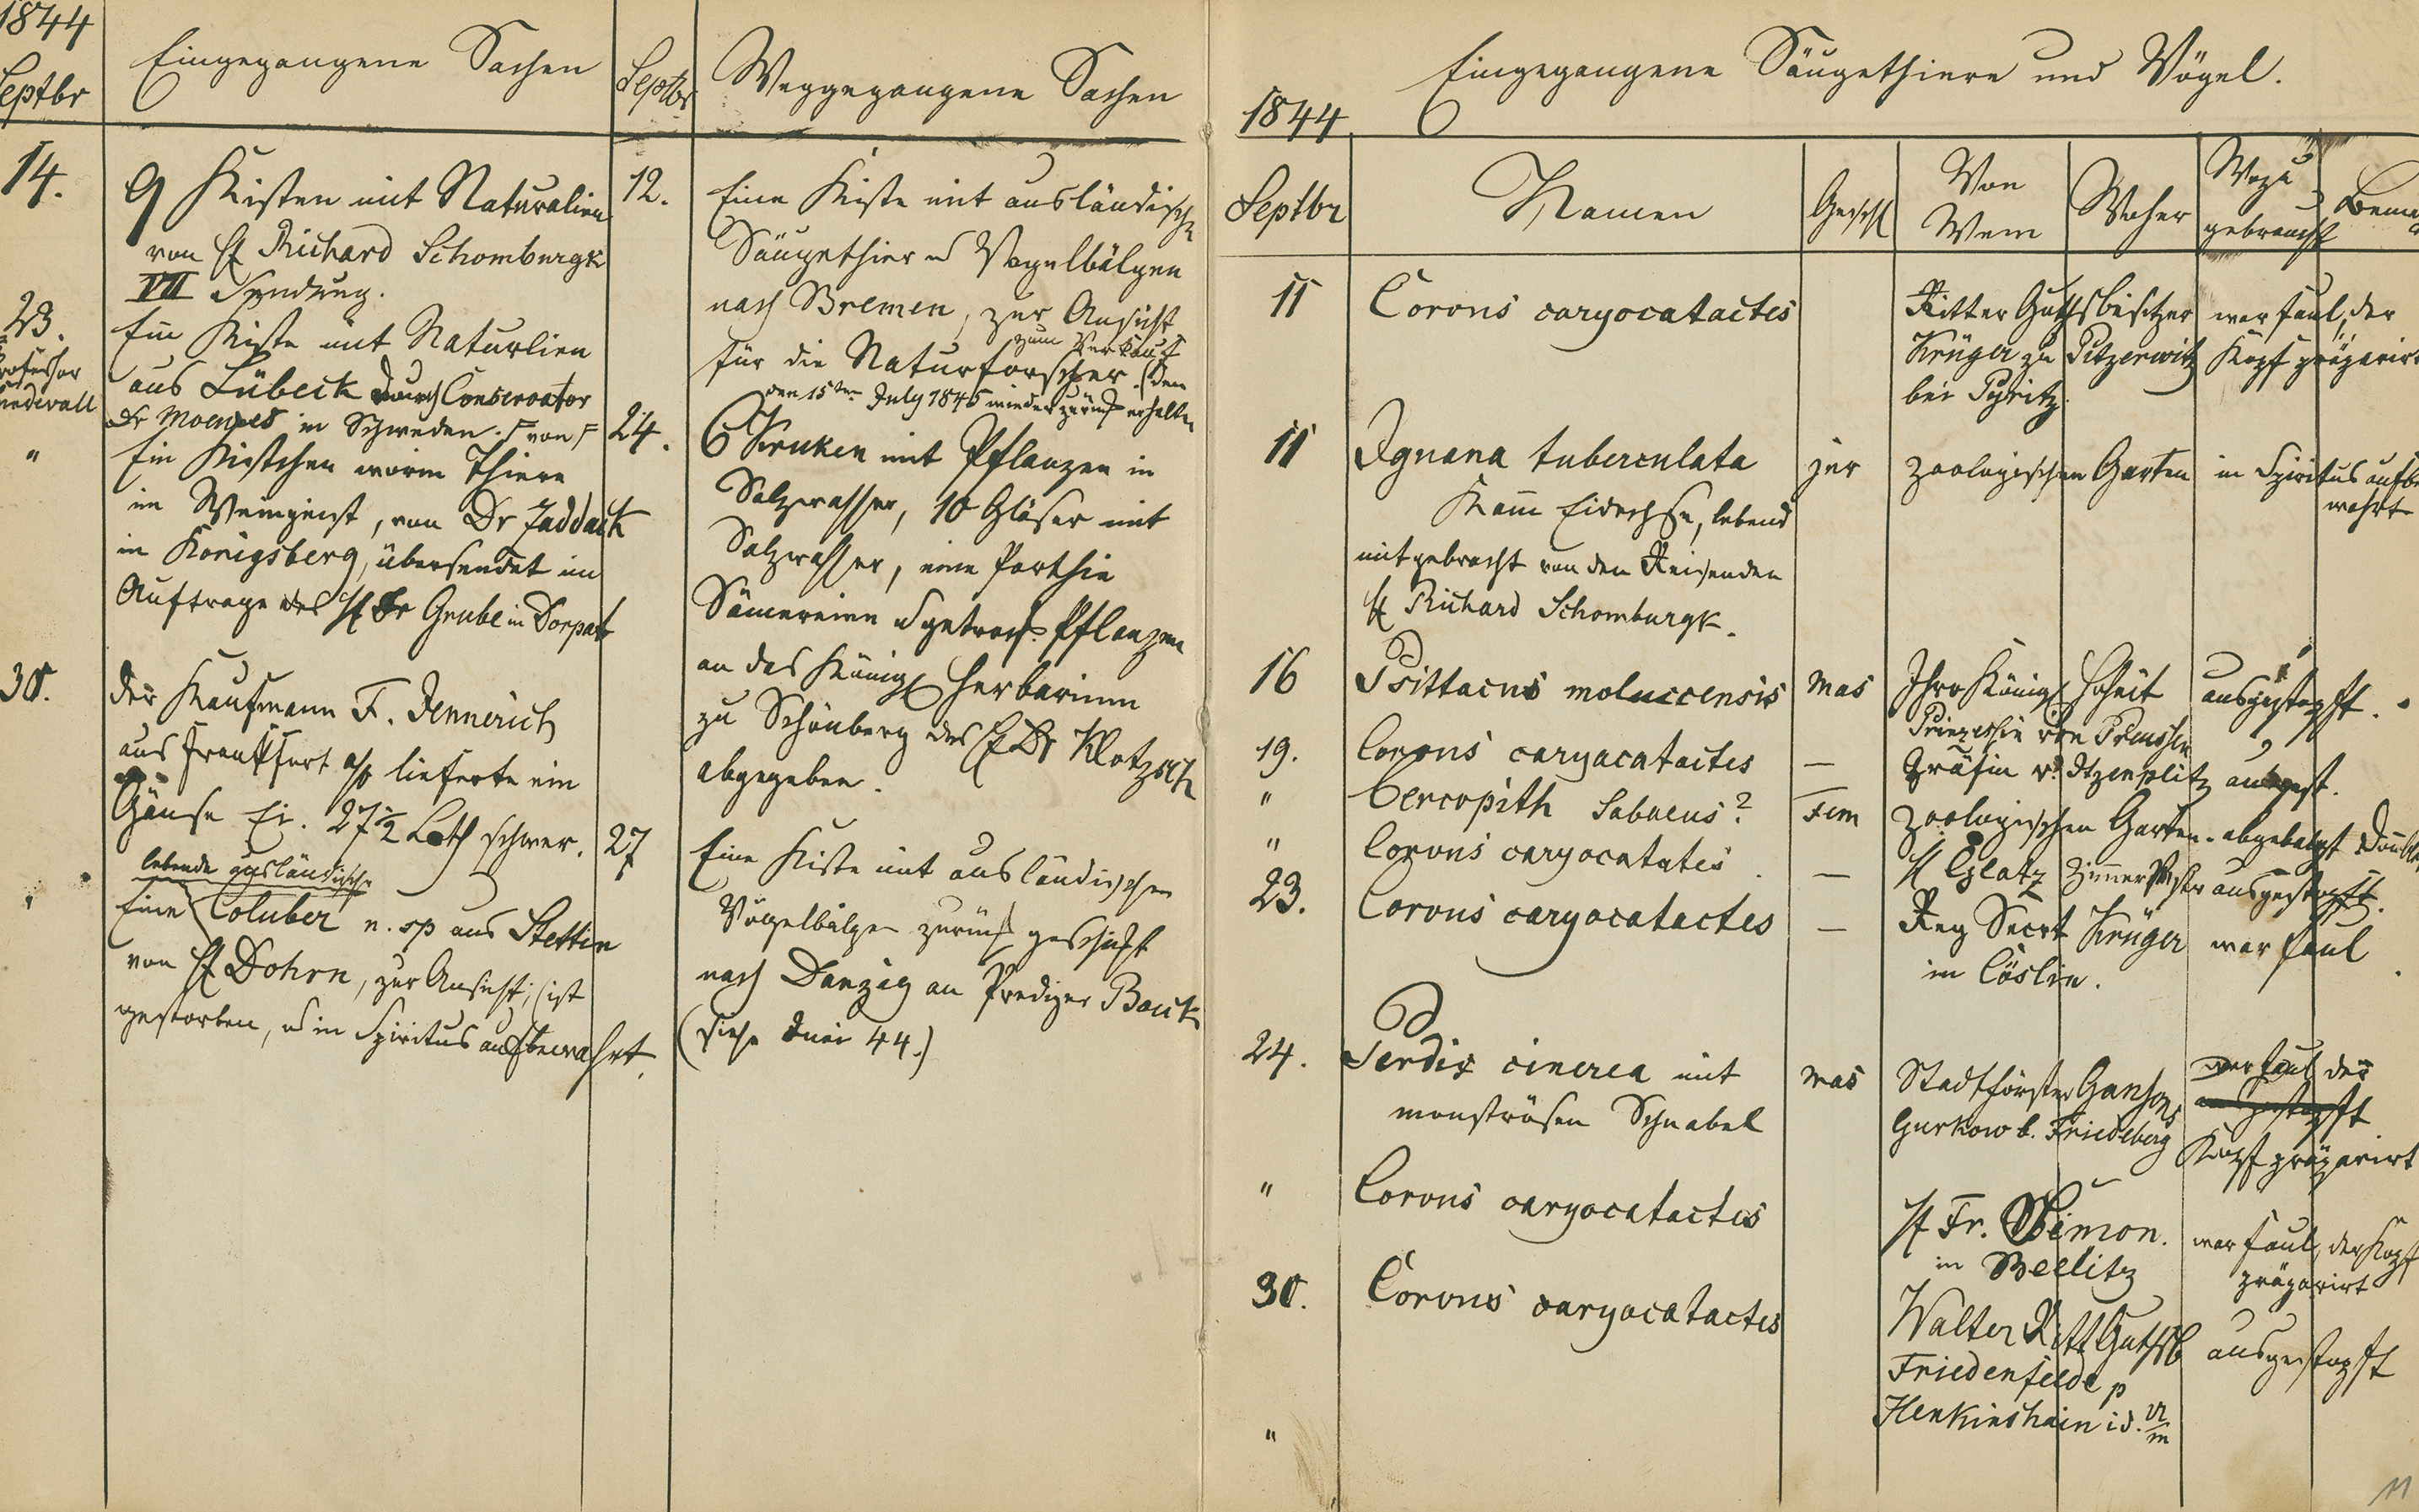 1844
Septbr
Eingegangene Sachen
14.
9 Kisten mit Naturalien
von H Richard Schomburgk
VII Sendung.
23.
Ein Kiste mit Naturlien
aus Lübeck durch Conservator
Dr in Schweden. von
"
Ein Kistchen worin Thiere
in Weingeist, von Dr Zaddach
in Königsberg, übersendet im
Auftrage des H Dr Grube in Dorpat
30.
der Kaufmann F. Jennerich
aus Frankfurt a/o lieferte ein
Gänse Ei. 27½ Loth schwer.
lebende ausländische
Eine Coluber n. sp aus Stettin
von H Dohrn, zur Ansicht; (ist
gestorben, u in Spiritus aufbewahrt.
Septbr
Weggegangene Sachen
12.
Eine Kiste mit ausländische
Säugethier u Vogelbälgen
nach Bremen, zur Ansicht
zum Verkauf
für die Naturforscher. (den
den 15ten July 1845 wieder zurück erhalten
24.
6 Kruken mit Pflanzen in
Salzwasser, 10 Gläser mit
Salzwasser, eine Parthie
Sämereien u getrock. Pflanzen
an das Königl Herbarium
zu Schönberg des H Dr Klotzsch
abgegeben.
27
Eine Kiste mit ausländischen
Vögelbälgen zurück geschickt
nach Danzig an Prediger Bock
(siehe Juni 44.)
Eingegangene Säugethiere und Vögel.
1844
Septbr
Namen
Geschl
Von Wem
Woher
Wozu gebraucht
11
Corvus caryocatactes
Ritter Guthsbesitzer
Krüger zu Pitzerwitz
bei Pyritz.
war faul, der
Kopf präparirt
11
Iguana tuberculata
jur
zoologischen Garten
in Spiritus aufbe
wahrt
Kam Eidechse, lebend
mitgebracht von den Reisenden
H Richard Schomburgk.
16
Psittacus moluccensis
mas
Ihro Königl Hoheit
Prinzessin von Preussen
ausgestopft.
19.
Corvus caryacatactes
—
Gräfin v. Itzenplitz
ausgest.
"
Cercopith Sabaeus?
Fem
Zoologischen Garten.
abgebalgt
"
Corvus caryocatates
—
H Eglatz Zimmer Mstr
ausgestopft.
23.
Corvus caryocatactes
—
Reg Secrt Krüger
in Cöslin.
war faul
24.
Perdix cinerea mit
monströsen Schnabel
mas
Stadtförster
Gurkow b. Friedeberg
war faul der
ausgestopft
Kopf präparirt
"
Corvus caryocatactes
H Fr. Simon.
in Beelitz
war faul, der Kopf
präparirt
30.
Corvus caryocatactes
Walter Ritt Guthsb
Friedenfelde p
Henkinshain i d. U/M
ausgestopft
"
11